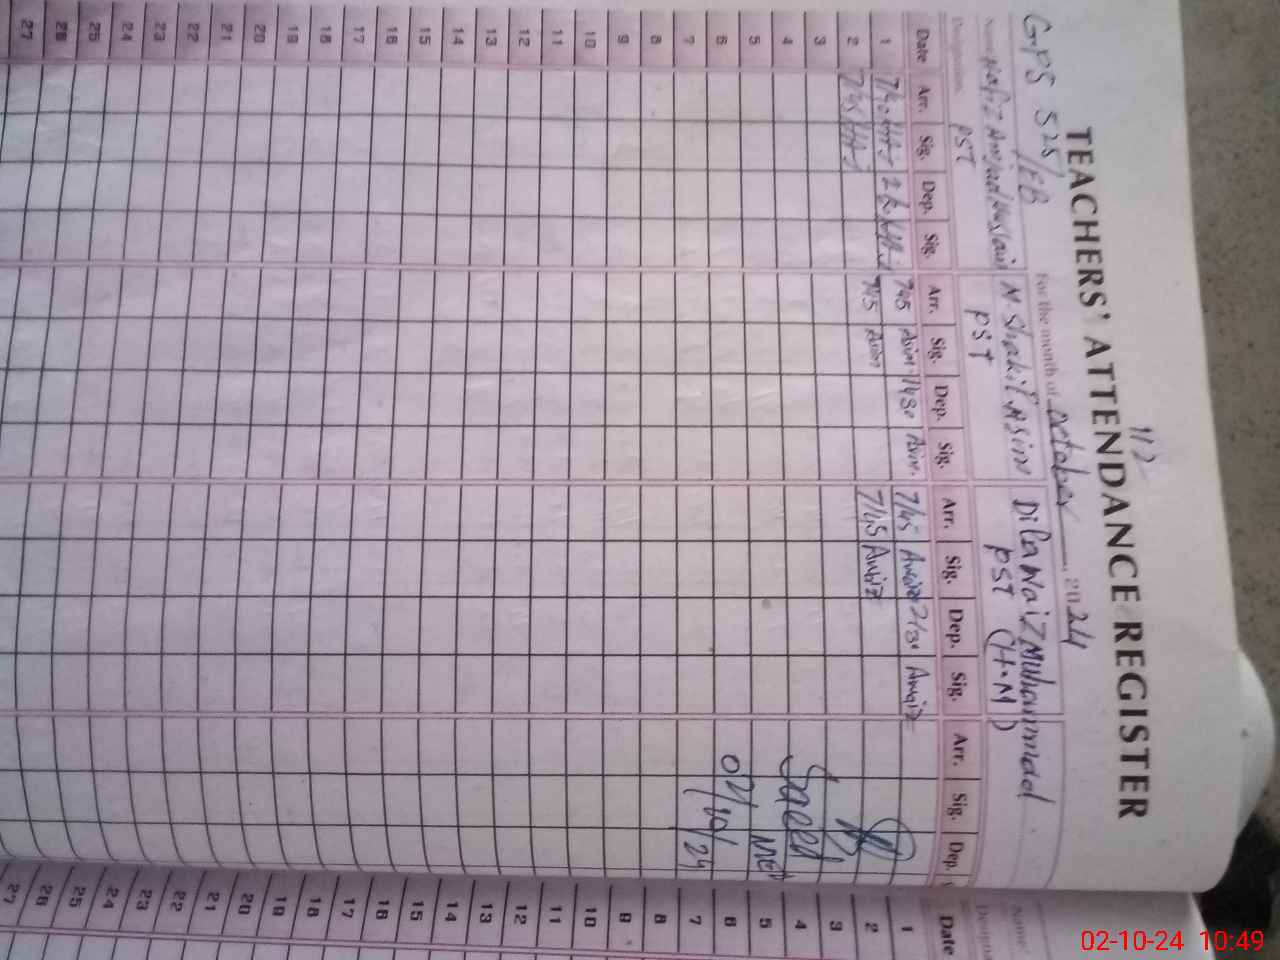 112
TEACHERS' ATTENDANCE REGISTER
GPS 525/EB For the month of October 2024
Name Hafiz Amjad Hussain M. Shakil Asim Dilawaiz Muhammad
Designation PST PST PST (H.M)
Date Arr. Sig. Dep. Sig. Arr. Sig. Dep. Sig. Arr. Sig. Dep. Sig. Arr. Sig. Dep.
1 745 Asim 1430 Asim. 7/45 Awaiz 2/30 Awaiz
2 745 Asim 7/45 Awaiz
3
4 Saeed
5 MEA
6 02/10/24
7
8
9
10
11
12
13
14
15
16
17
18
19
20
21
22
23
24
25
26
27
Name
Date
1
2
3
4
5
6
7
8
9
10
11
12
13
14
15
16
17
18
19
20
21
22
23
24
25
26
27
02-10-24 10:49